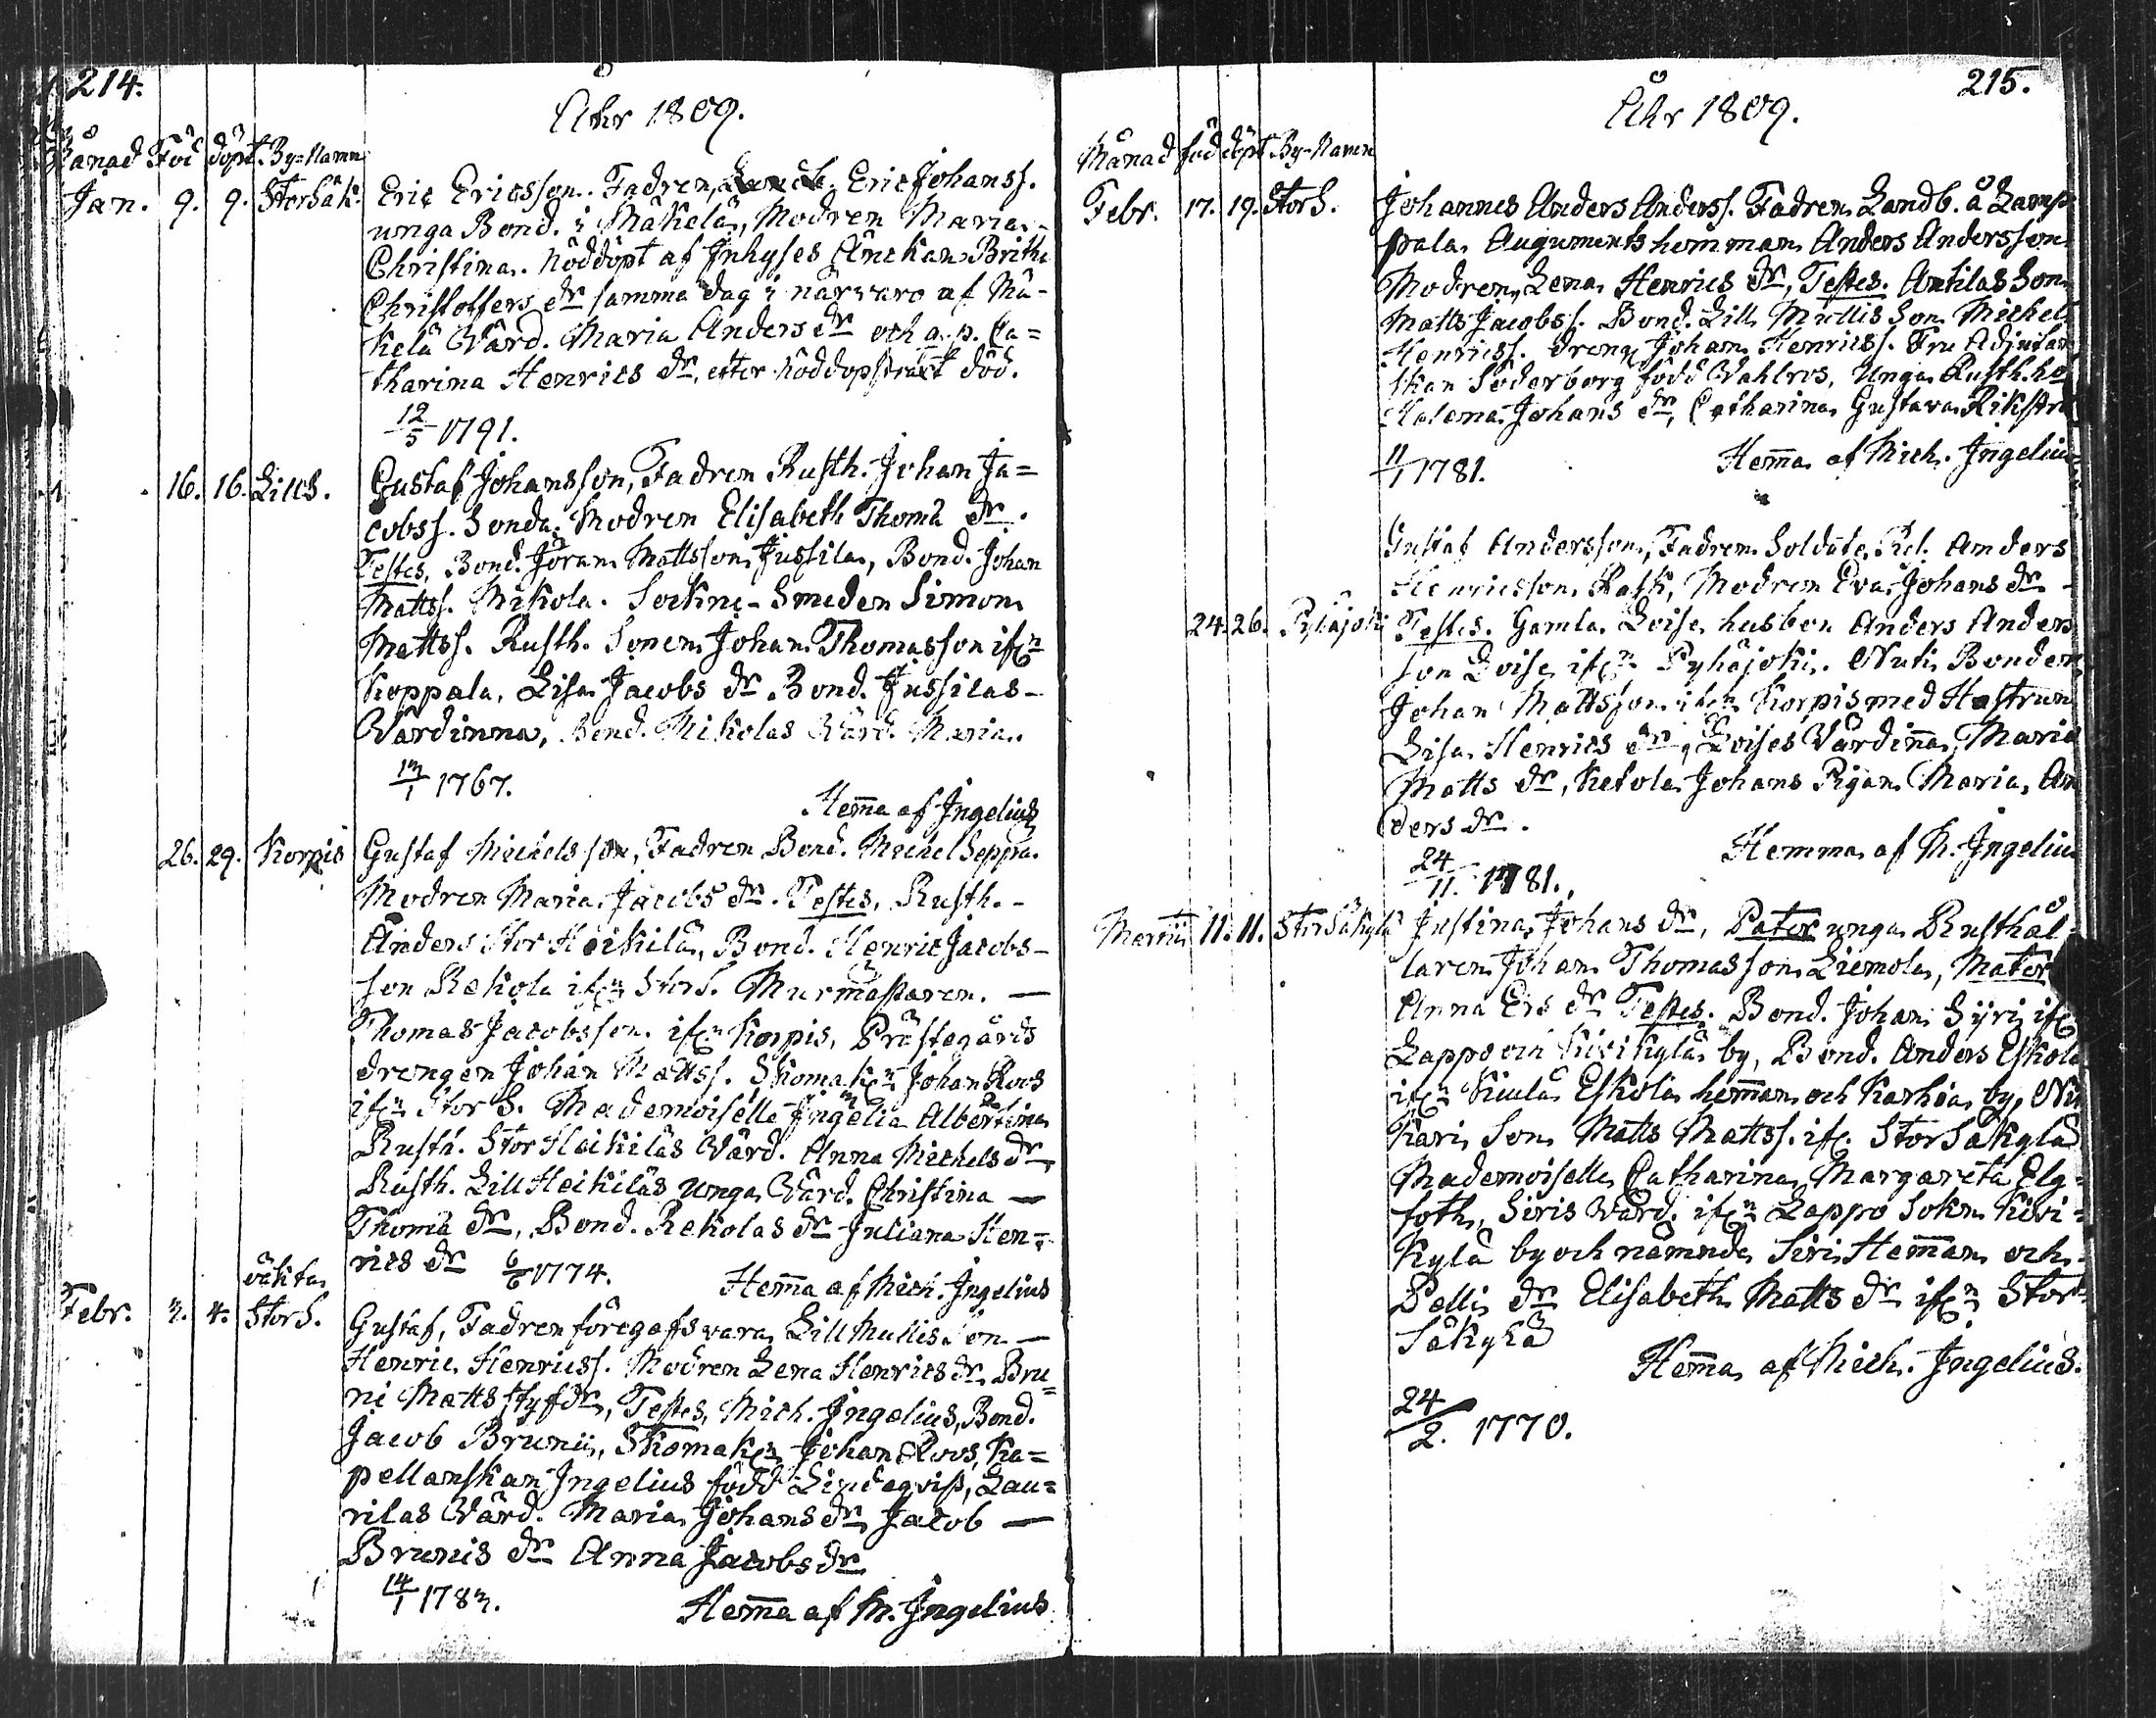 214.
Åhr 1809.
Månad Föd döpt. By=Namn
Jan. 9. 9. StorSäk. Eric Ericsson. Fadren, Eric Johanss.
unga Bond. i Mäkelä, Modren Maria
Christina. Nöddöpt af Inhyses Änckan Britha
Christoffers dr samma dag i närvaro af Mä-
kelä Värd. Maria Anders dr och a. p. Ca=
tharina Henrics dr, efter nöddopet död.
12/5 1791.
16. 16. LillS. Gustaf Johansson, Fadren Rusth. Johan Ja=
cobss. Sonda. Modren Elisabeth Thomä dr.
Testes, Bond. Jöran Mattsson Jussila, Bond. Johan
Mattss. Mikola. Sockne-Smeden Simon
Mattss. Rusth. Sonen Johan Thomasson ifrn
Koppala, Lisa Jacobs dr. Bond. Jussilas-
Värdinna, Bond. Mikolas Värd. Maria.
13/1 1767.
Hem̅a af Ingelius
26. 29. Korpis Gustaf Michelsson, Fadren Bond. Michel Seppä.
Modren Maria Jacobs dr. Testes, Rusth. -
Anders Stor Heikilä, Bond. Henric Jacobs-
son Rekola ifrn StorS. Murmästaren. —
Thomas Jacobsson. ifrn Korpis, Prästegårds
drengen Johan Mattss. Skomakrn Johan Roos
ifrn StorS. Mademoiselle Ingelia Albertina
Rusth. Stor Heikiläs Värd. Anna Michels dr,
Rusth. Lill Heikiläs unga Värd. Christina —
Thomä dr, Bond. Rekolas dr Juliana Hen-
rics dr 6/6 1774.
Hem̅a af Mich. Ingelius
oäkta
Febr. 3. 4. StorS. Gustaf, Fadren föregafs vara LillMullis Son —
Henric Henricss. Modren Lena Henrics dr. Bru=
ni Matts styfdr, Testes, Mich. Ingelius, Bond.
Jacob Brunii, Skomakrn Johan Roos, Ka=
pellanskan Ingelius född Lindeqvist, Lau=
rilas Värd. Maria Johans dr, Jacob —
Brunis dr Anna Jacobs dr
14/1 1783.
Hem̅a af M. Ingelius
215.
Åhr 1809.
Månad född döpt By-Namn
Febr. 17. 19. StorS. Johannes Anders Anderss. Fadren Landb. å Lamp
pala Augments hemman Anders Andersson
Modren, Lena Henrics dr, Testes. Antilas Son
Matts Jacobss. Bond. Lill Mullis Son Michel
Henricss. dreng Johan Henricss. Fru Adjutan
skan Söderborg född Wahlros, Unga Rusth.
Johans dr, Catharina Gustava Rikstr
11/1 1781.
Hem̅a af Mich. Ingelius
Gustaf Andersson, Fadren Soldate, Rel. Anders
Henricsson Rask, Modren Eva Johans dr -
24. 26. Pyhäjoki Testes. Gamla Loise husbon Anders Anders
son Loise ifrn Pyhäjoki. Nuti Bonden
Johan Mattsson ifrn Korpis med Hustrun
Lisa Henrics dr, Loises Värdin̅a, Maria
Matts dr, Ketola Johans Pigan Maria An
ders dr.
Hemma af M. Ingelius
24/11. 1781.
Martii 11. 11. StorSäkylä Justina Johans dr, Pater unga Rusthål=
laren Johan Thomasson Liemola, Mater
Anna Ers dr Testes. Bond. Johan Siri ifrn
Lappo och Kivikylä by, Bond. Anders Eskola
ifrn Kiula Eskola hem̅an och Karhia by, Nu
Kari Son Matts Mattss. ifr. StorSäkylä
Mademoiselle Catharina Margareta Elg=
foth, Siris Värd. ifrn Lappo Sokn Kivi=
kylä by och nämnda Siri Hem̅an och
Pelli dr Elisabeth Matts dr ifrn Stor
Säkylä
Hem̅a af Mich. Ingelius.
24/2. 1770.